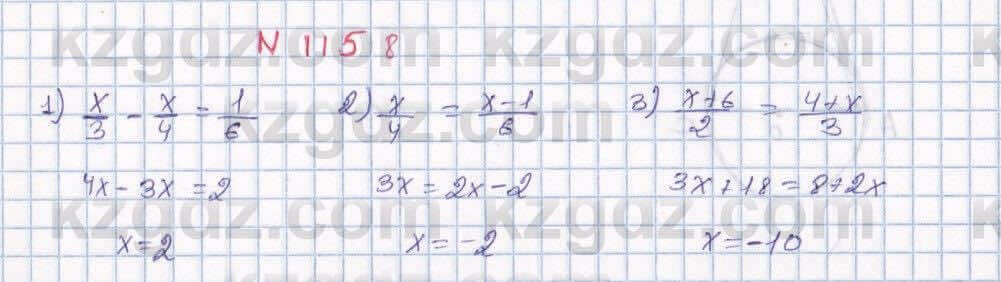 N 1158
1) x/3 - x/4 = 1/6 2) x/4 = x-1/6 3) x+6/2 = 4+x/3
4x - 3x = 2 3x = 2x - 2 3x + 18 = 8 + 2x
x = 2 x = -2 x = -10
kzgdz.com kzgdz.com
kzgdz.com kzgdz.com
kzgdz.com kzgdz.com